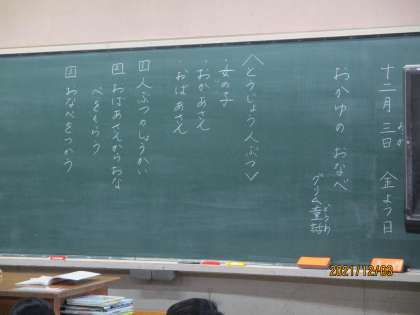 十二月三日 金よう日
か
おかゆの おなべ
グリム童話
どうわ
＜とうじょう人ぶつ＞
・女の子
・おかあさん
・おばあさん
人ぶつのしょうかい
おばあさんからおな
べをもらう
おなべをつかう
2021/12/03